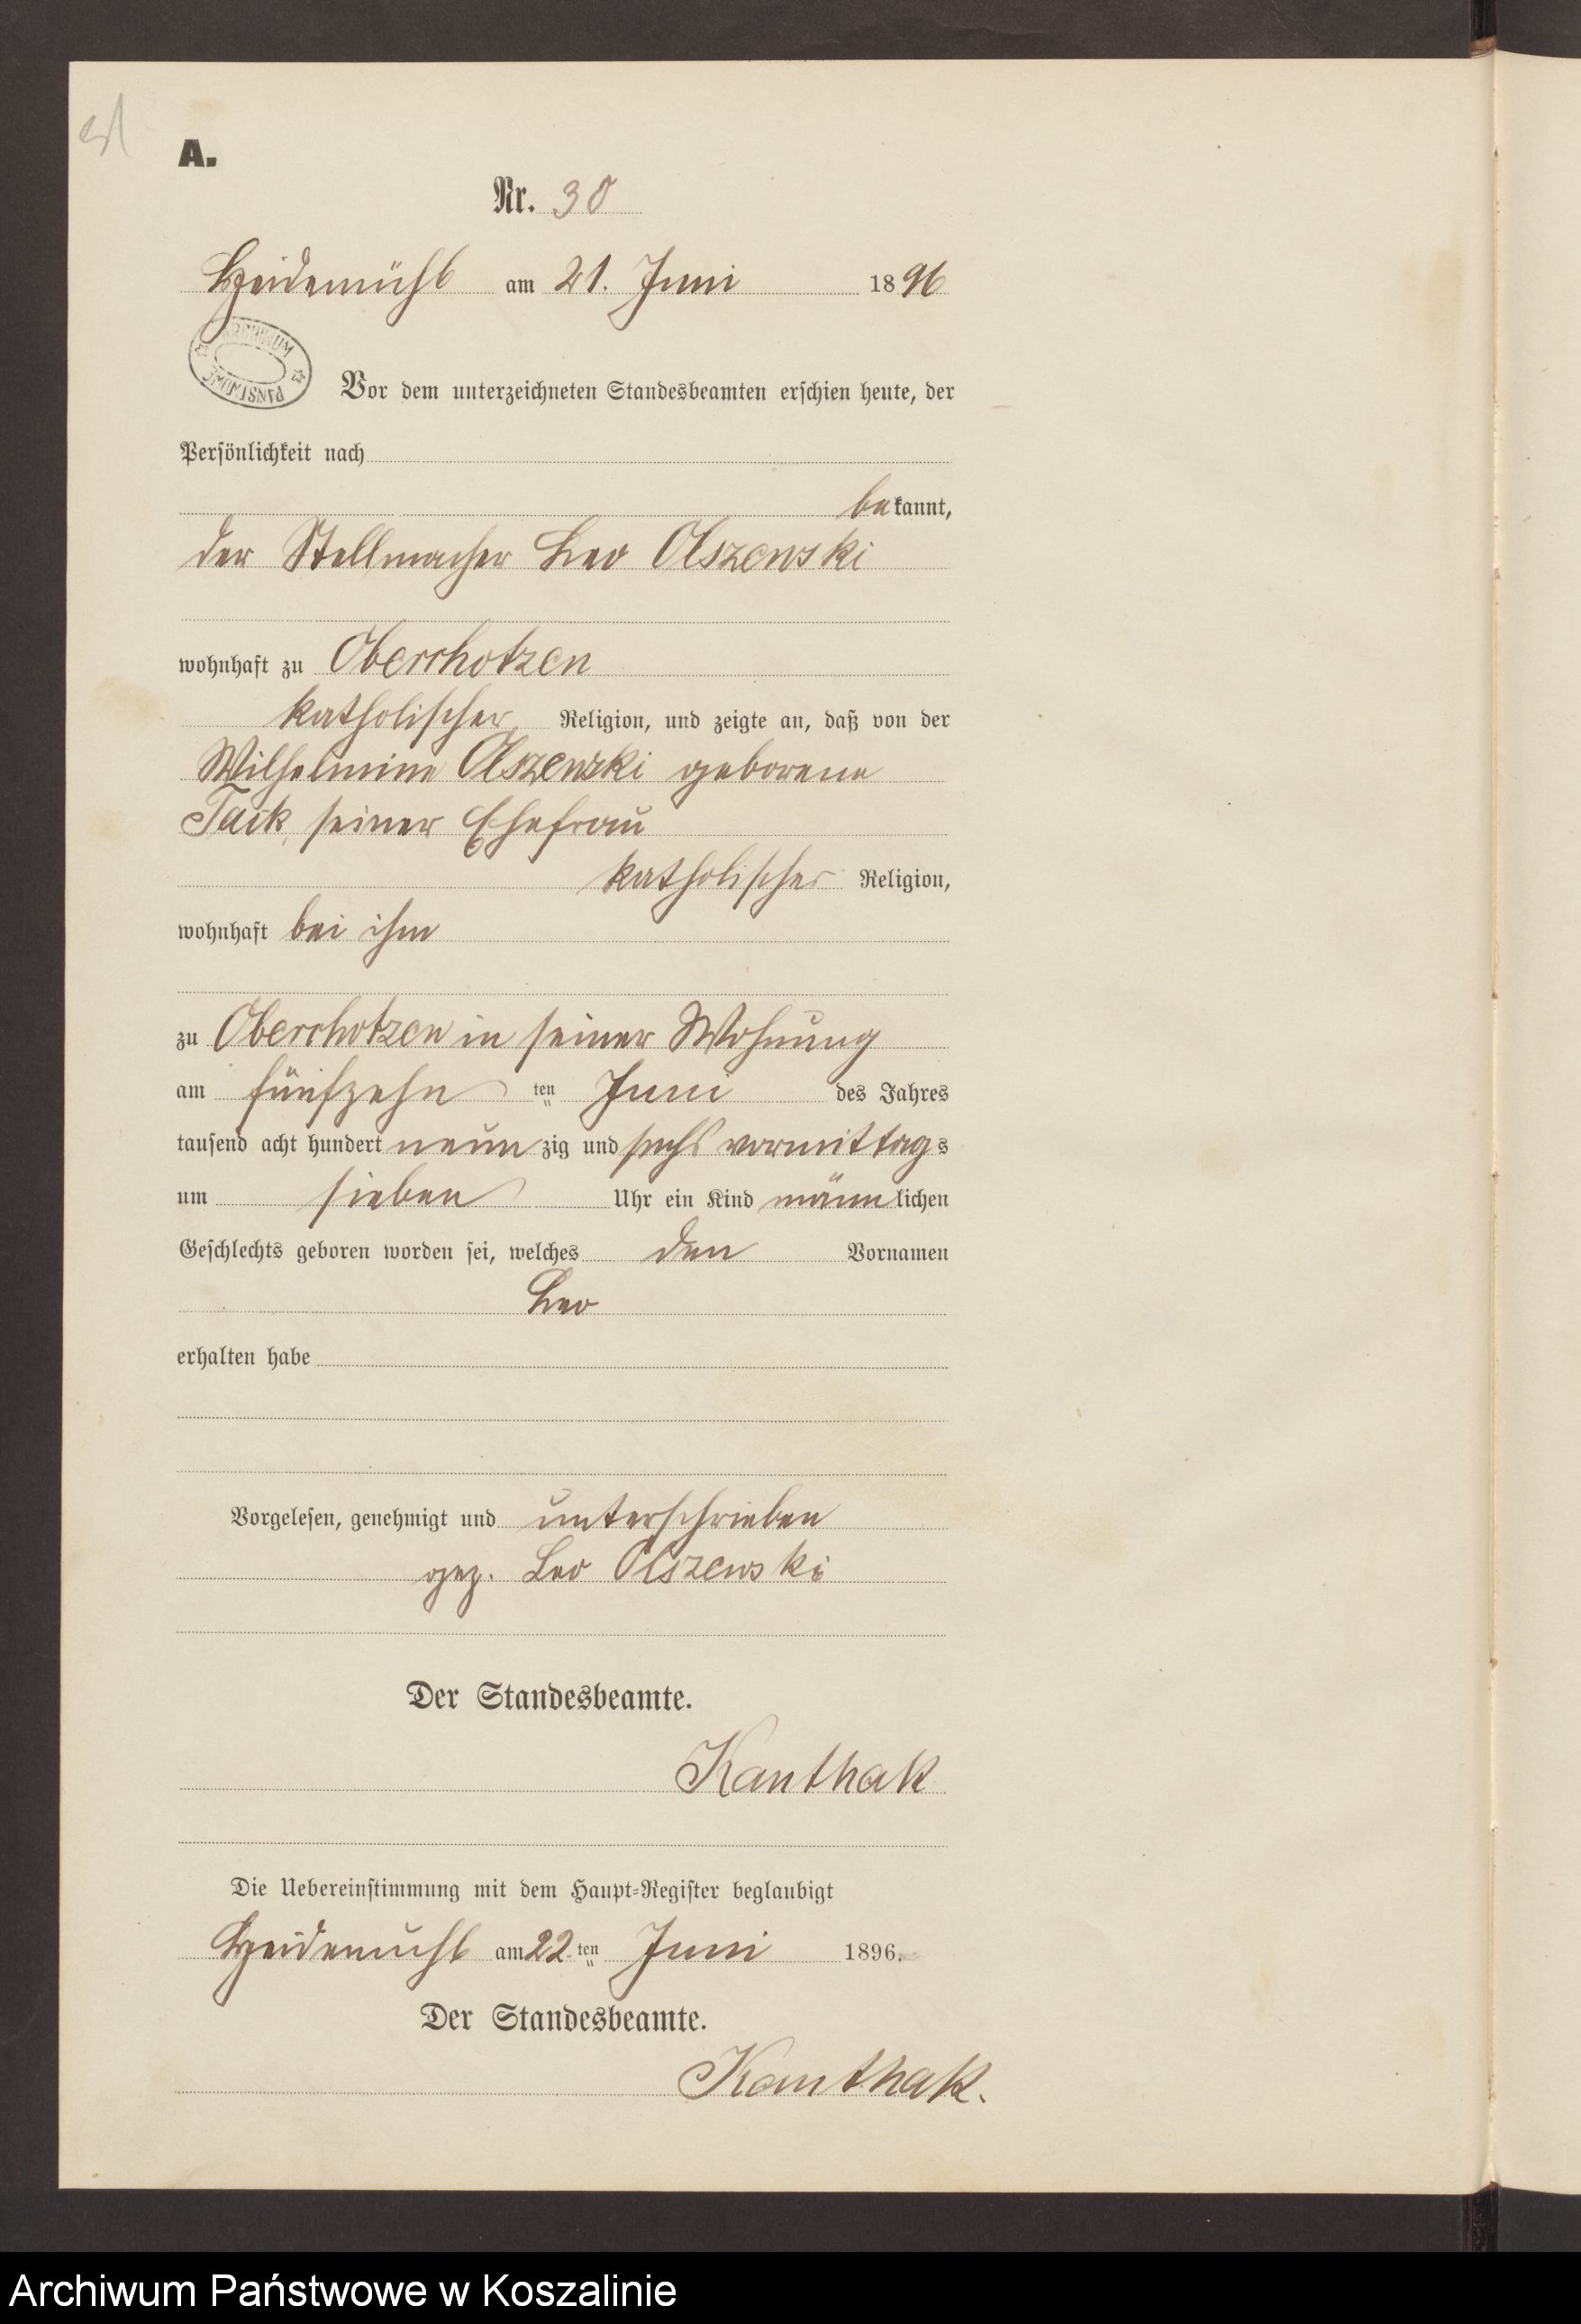 A.
Nr. 30
Heidemühl am 21. Juni 1896
ARCHIWUM PAŃSTWOWE
Vor dem unterzeichneten Standesbeamten erschien heute, der
Persönlichkeit nach
bekannt,
der Stellmacher Leo Olszewski
wohnhaft zu Oberchotzen
katholischer Religion, und zeigte an, daß von der
Wilhelmine Olszewski geborene
Tack, seiner Ehefrau
katholischer Religion,
wohnhaft bei ihm
zu Oberchotzen in seiner Wohnung
am fünfzehnten Juni des Jahres
tausend acht hundert neunzig und sechs vormittags
um sieben Uhr ein Kind männlichen
Geschlechts geboren worden sei, welches den Vornamen
Leo
erhalten habe
Vorgelesen, genehmigt und unterschrieben
gez. Leo Olszewski
Der Standesbeamte.
Kanthak
Die Uebereinstimmung mit dem Haupt-Register beglaubigt
Heidemuhl am 22ten Juni 1896.
Der Standesbeamte.
Kanthak.
Archiwum Państwowe w Koszalinie